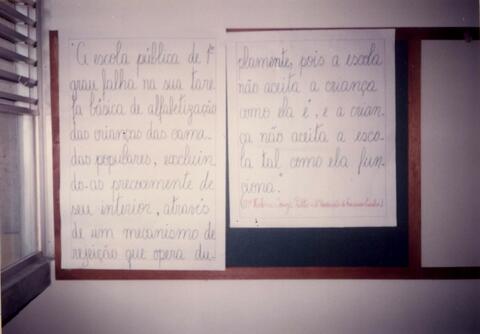 "A escola pública de 1º
grau falha na sua tare
fa básica de alfabetização
das crianças das cama-
das populares, excluin
do-as precocemente de
seu interior, através
de um mecanismo de
rejeição que opera du-
plamente, pois a escola
não aceita a criança
como ela é, e a crian
ça não aceita a esco-
la tal como ela fun-
ciona."